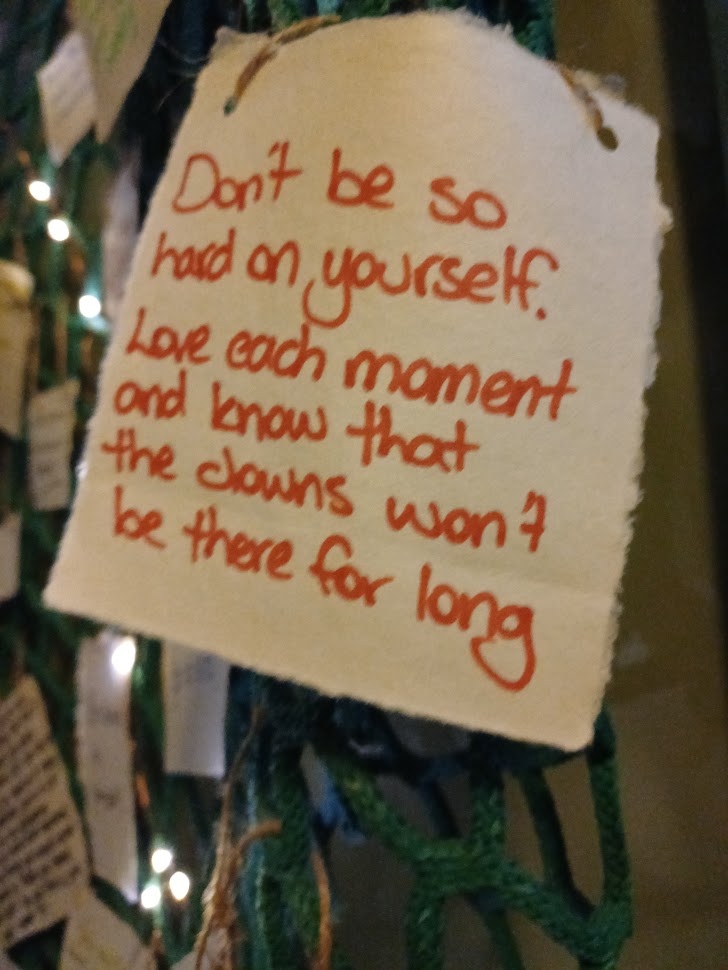 Don't be so
hard on yourself.
Love each moment
and know that
the clowns won't
be there for long